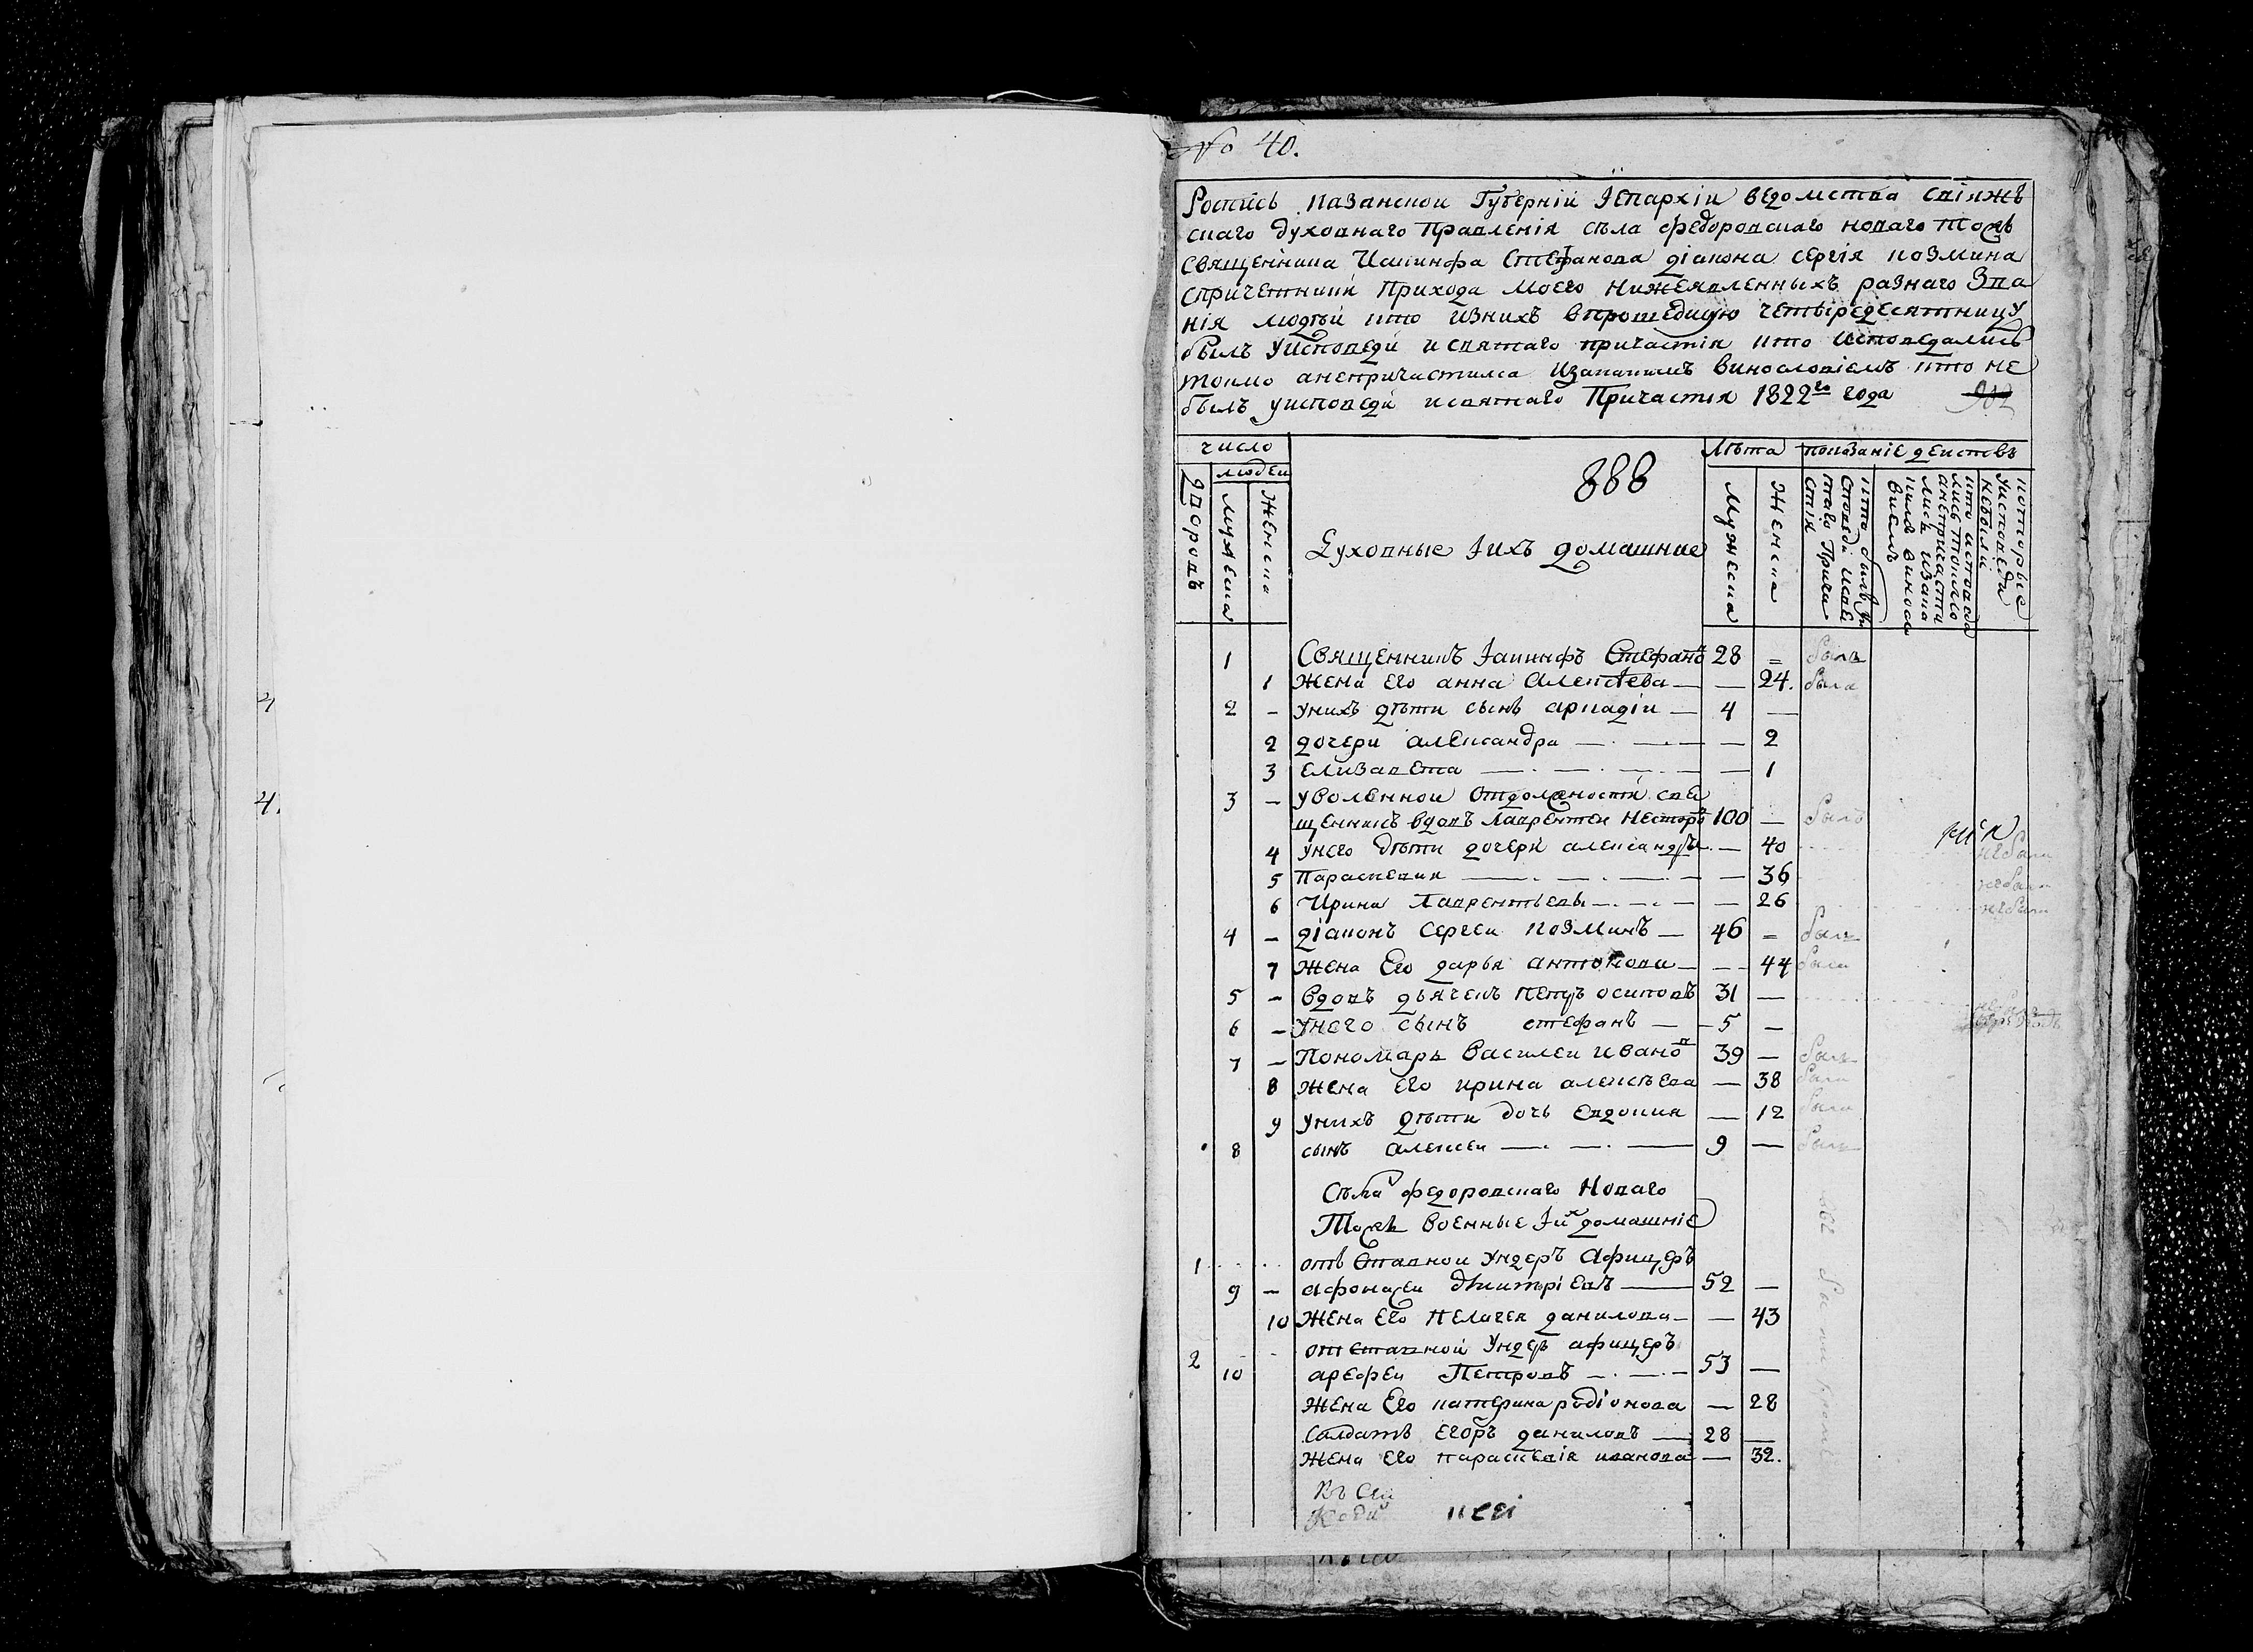 № 40.
Роспись Казанской Губерніи Іепархіи ведомства свіяжѣ
скаго духовнаго Правленія села федоровскаго новаго тожь
священника Иакинфа Стефанова діакона сергія козмина
спричетники Прихода моего нижеявленныхъ разнаго Зва
нія людѣй кто изнихъ впрошедшую четыредесятницу
былъ уисповеди и святаго причастія кто исповедались
токмо анепричастился изакакимъ винословіемъ кто не
былъ уисповеди исвятаго Причастія 1822го года
число
людеи
Дворовъ
Мужеска
Женска
888
Духовные Іихъ домашние
Лѣта
показаніе деиствъ
Мужеска
Женска
которые уисповеди небыли
4
4.
1 Священникъ Іакинфъ Стефановъ 28 = былъ
1 Жена Его анна Алексѣева — — 24. была
2 – унихъ дѣти сынъ аркадіи — 4 —
2 дочери александра — — 2
3 елизавета — — 1
3 – уволенной отдолжности свя
щенникъ вдовъ лаврентеи несторовъ 100 — былъ
4 унего дѣти дочери александра — 40 небыли
5 Параскевия — — 36 небыли
6 Ирина Лаврентьевы — — 26 небыли
4 – діаконъ Сергеи козминъ — 46 = былъ
7 Жена Его дарья антонова — — 44 была
5 – Вдовъ дьячекъ Петръ осиповъ 31 —
6 – Унего сынъ стефанъ — 5 —
7 – Пономарь Василеи Ивановъ 39 — былъ
8 Жена Его ирина алексѣева — 38 была
9 Унихъ дѣти дочь Евдокия — 12 была
8 сынъ алексеи — 9 — былъ
Сѣла федоровскаго Новаго
Тожь военные Іихъ домашніе
1 отъ ставнои Ундеръ Афицеръ
9 – афонасеи дмитріевъ — 52 —
10 Жена Его Пелагея данилова — — 43
2 отставной Ундеръ афицеръ
10 арефеи Петровъ — 53 —
Жена Его катерина родіонова — 28
Солдатъ Егоръ даниловъ — 28 —
Жена Его параскевія иванова — 32.